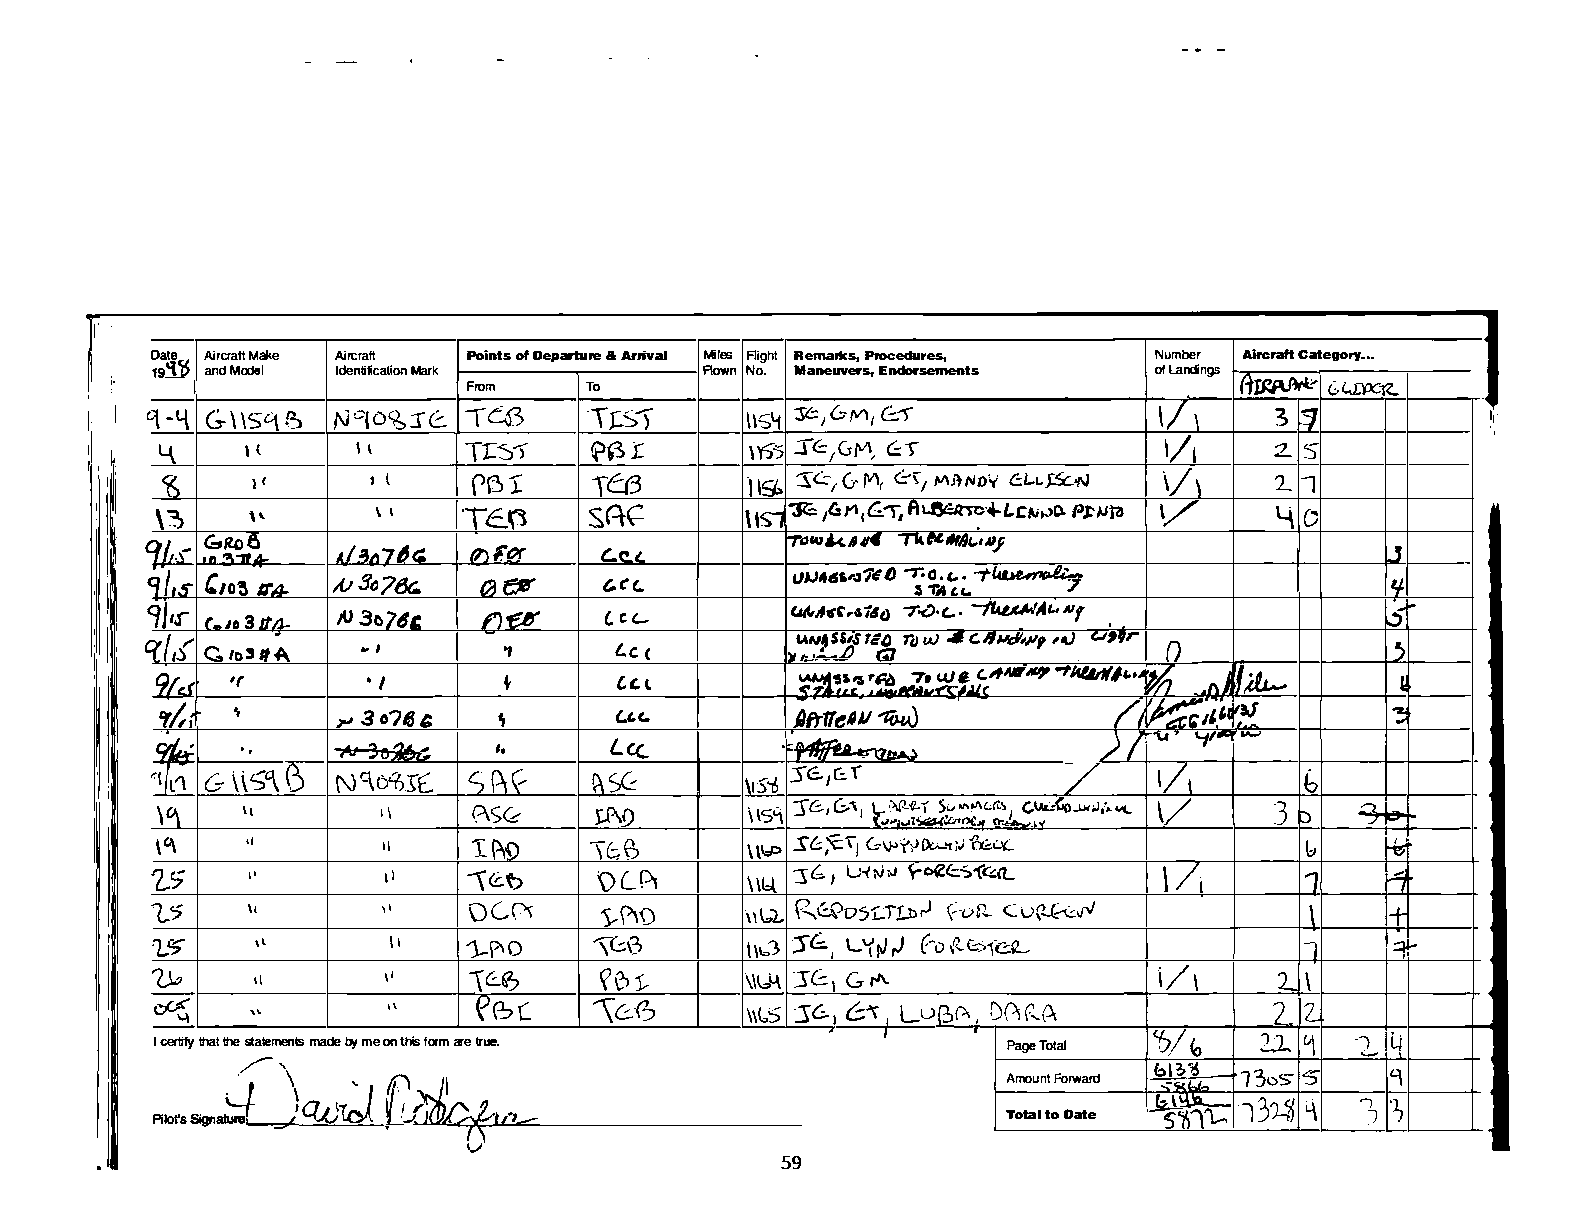 Date 1998 Aircraft Make and Model Aircraft Identification Mark Points of Departure & Arrival From To Miles Flown Flight No. Remarks, Procedures, Maneuvers, Endorsements Number of Landings Aircraft Category... AIRPLANE GLIDER
9-4 G1159B N908JE TEB TIST 1154 JE, GM, ET 1/1 3 7
4 " " TIST PBI 1155 JE, GM, ET 1/1 2 5
8 " " PBI TEB 1156 JE, GM, ET, MANDY ELLISON 1/1 2 7
13 " " TEB SAF 1157 JE, GM, ET, ALBERTO + LINDA PINTO 1/ 4 0
9/15 GROB 103 IIA N3078G LCC THERMALING 3
9/15 G103 IIA N3078G LCC UNASSISTED T.O.C. Thermaling STALL 4
9/15 G103 IIA N3078G LCC UNASSISTED T.O.C. THERMALING 5
9/15 G103 IIA " " LCC UNASSISTED TOW & LANDING IN Light 3
9/15 " " " LCC UNASSISTED TOW & LANDING THERMALING STALLS, 4
9/15 " N3078G " LCC PATTERN TOW 3
9/15 " N3078G " LCC
9/17 G1159B N908JE SAF ASE 1158 JE, ET 1/1 6
19 " " ASE IAD 1159 JE, ET, LARRY SUMMERS, 1/ 3 0 3 0
19 " " IAD TEB 1160 JE, ET, GWYNDOLYN BECK 6 6
25 " " TEB DCA 1161 JE, LYNN FORESTER 1/1 7 7
25 " " DCA IAD 1162 REPOSITION FOR CURFEW 1 1
25 " " IAD TEB 1163 JE, LYNN FORESTER 7 7
26 " " TEB PBI 1164 JE, GM 1/1 2 1
OCT 4 " " PBI TEB 1165 JE, ET, LUBA, DARA 2 2
I certify that the statements made by me on this form are true.
Page Total 8/6 22 9 2 4
Amount Forward 6138 5866 7305 5 9
Pilot's Signature David Rodgers
Total to Date 6146 5872 7328 4 3 3
59